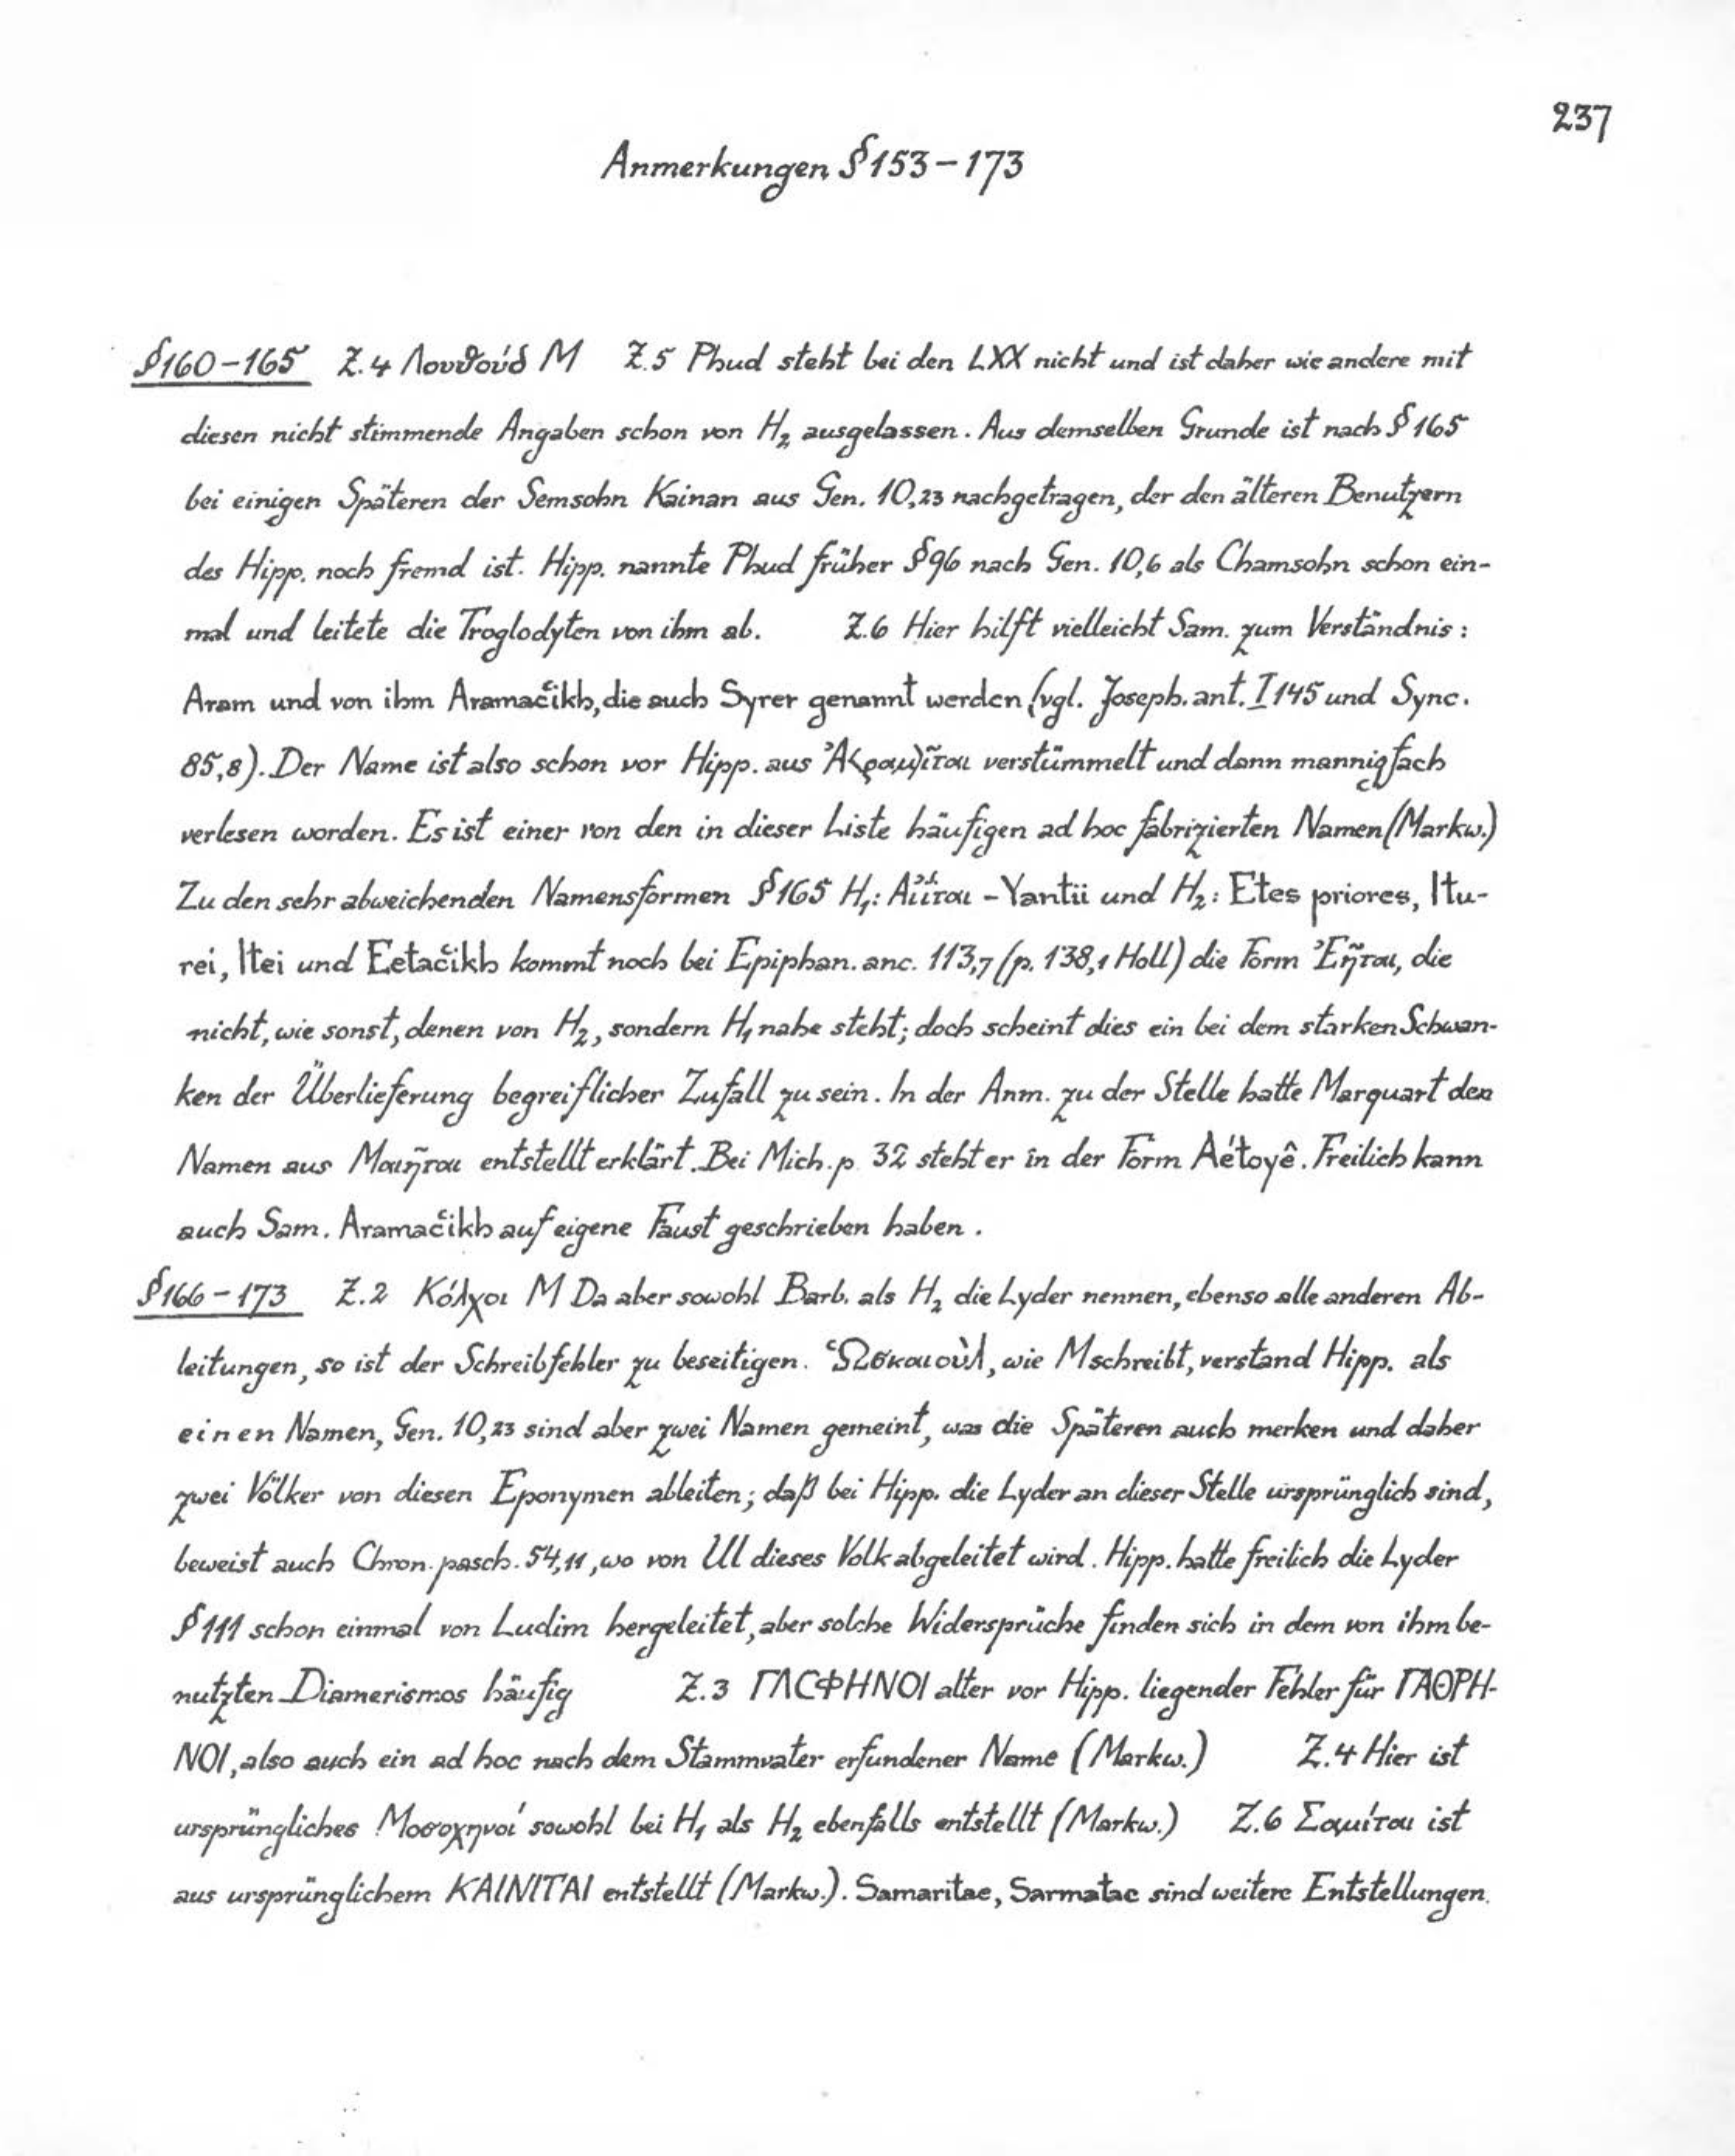 237
Anmerkungen § 153–173
§160–165 Z.4 Λουθούδ M Z.5 Phud steht bei den LXX nicht und ist daher wie andere mit
diesen nicht stimmende Angaben schon von H₂ ausgelassen. Aus demselben Grunde ist nach § 165
bei einigen Späteren der Semsohn Kainan aus Gen. 10,23 nachgetragen, der den älteren Benutzern
des Hipp. noch fremd ist. Hipp. nannte Phud früher § 96 nach Gen. 10,6 als Chamsohn schon ein-
mal und leitete die Troglodyten von ihm ab. Z.6 Hier hilft vielleicht Sam. zum Verständnis:
Aram und von ihm Aramačikh, die auch Syrer genannt werden (vgl. Joseph. ant. I 145 und Sync.
85,8). Der Name ist also schon vor Hipp. aus Ἀ<ραμ>ῖται verstümmelt und dann mannigfach
verlesen worden. Es ist einer von den in dieser Liste häufigen ad hoc fabrizierten Namen (Markw.)
Zu den sehr abweichenden Namensformen § 165 H₁: – Yantii und H₂: Etes priores, Itu-
rei, Itei und Eetačikh kommt noch bei Epiphan. anc. 113,7 (p. 138,1 Holl) die Form Ἐῆται, die
nicht, wie sonst, denen von H₂, sondern H₁ nahe steht; doch scheint dies ein bei dem starken Schwan-
ken der Überlieferung begreiflicher Zufall zu sein. In der Anm. zu der Stelle hatte Marquart den
Namen aus Μαιῆται entstellt erklärt. Bei Mich. p. 32 steht er in der Form Aétoyê. Freilich kann
auch Sam. Aramačikh auf eigene Faust geschrieben haben.
§166–173 Z.2 Κόλχοι M Da aber sowohl Barb. als H₂ die Lyder nennen, ebenso alle anderen Ab-
leitungen, so ist der Schreibfehler zu beseitigen. Ὡσκαιοὺλ, wie M schreibt, verstand Hipp. als
einen Namen, Gen. 10,23 sind aber zwei Namen gemeint, was die Späteren auch merken und daher
zwei Völker von diesen Eponymen ableiten; daß bei Hipp. die Lyder an dieser Stelle ursprünglich sind,
beweist auch Chron. pasch. 54,11, wo von Ul dieses Volk abgeleitet wird. Hipp. hatte freilich die Lyder
§ 111 schon einmal von Ludim hergeleitet, aber solche Widersprüche finden sich in dem von ihm be-
nutzten Diamerismos häufig Z.3 ΓΛСΦΗΝΟΙ alter vor Hipp. liegender Fehler für ΓΑΘΡΗ-
ΝΟΙ, also auch ein ad hoc nach dem Stammvater erfundener Name (Markw.) Z.4 Hier ist
ursprüngliches Μοσοχηνοί sowohl bei H₁ als H₂ ebenfalls entstellt (Markw.) Z.6 Σαμίται ist
aus ursprünglichem ΚΑΙΝΙΤΑΙ entstellt (Markw.). Samaritae, Sarmatae sind weitere Entstellungen.